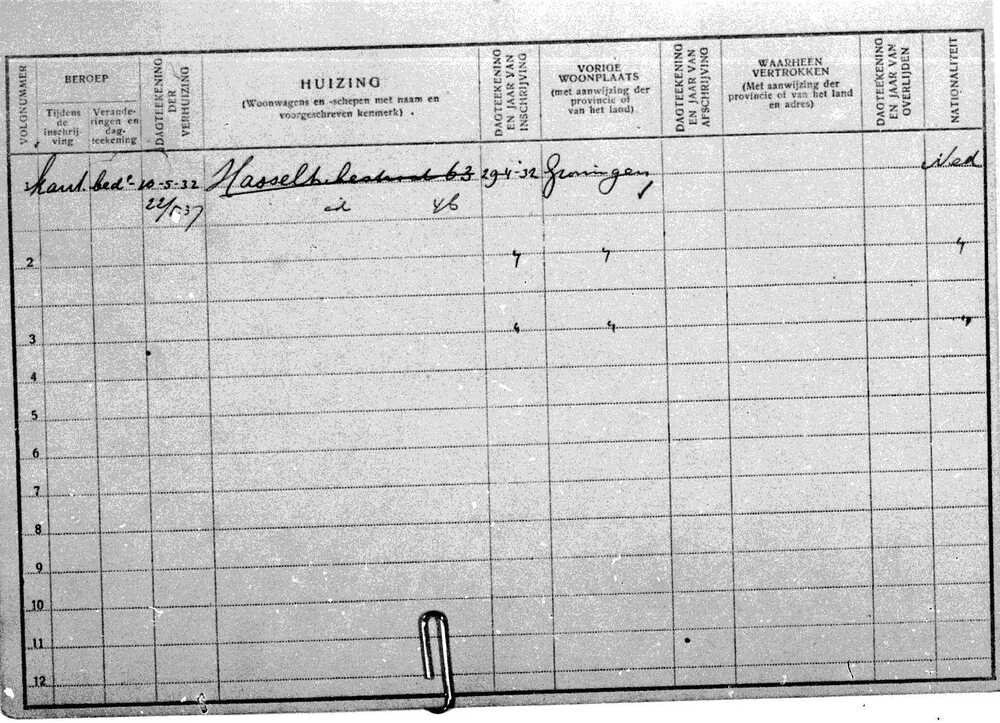 VOLGNUMMER
BEROEP
Tijdens de inschrij-ving
Verande-ringen en dag-teekening
DAGTEEKENING DER VERHUIZING
HUIZING
(Woonwagens en -schepen met naam en
voorgeschreven kenmerk)
DAGTEEKENING EN JAAR VAN INSCHRIJVING
VORIGE
WOONPLAATS
(met aanwijzing der
provincie of
van het land)
DAGTEEKENING EN JAAR VAN AFSCHRIJVING
WAARHEEN
VERTROKKEN
(Met aanwijzing der
provincie of van het land
en adres)
DAGTEEKENING EN JAAR VAN OVERLIJDEN
NATIONALITEIT
1 kant. bede 10-5-32 63 29-4-32 Groningen Ned
22/5 37 id 46
2 " " "
3 " " "
4
5
6
7
8
9
10
11
12